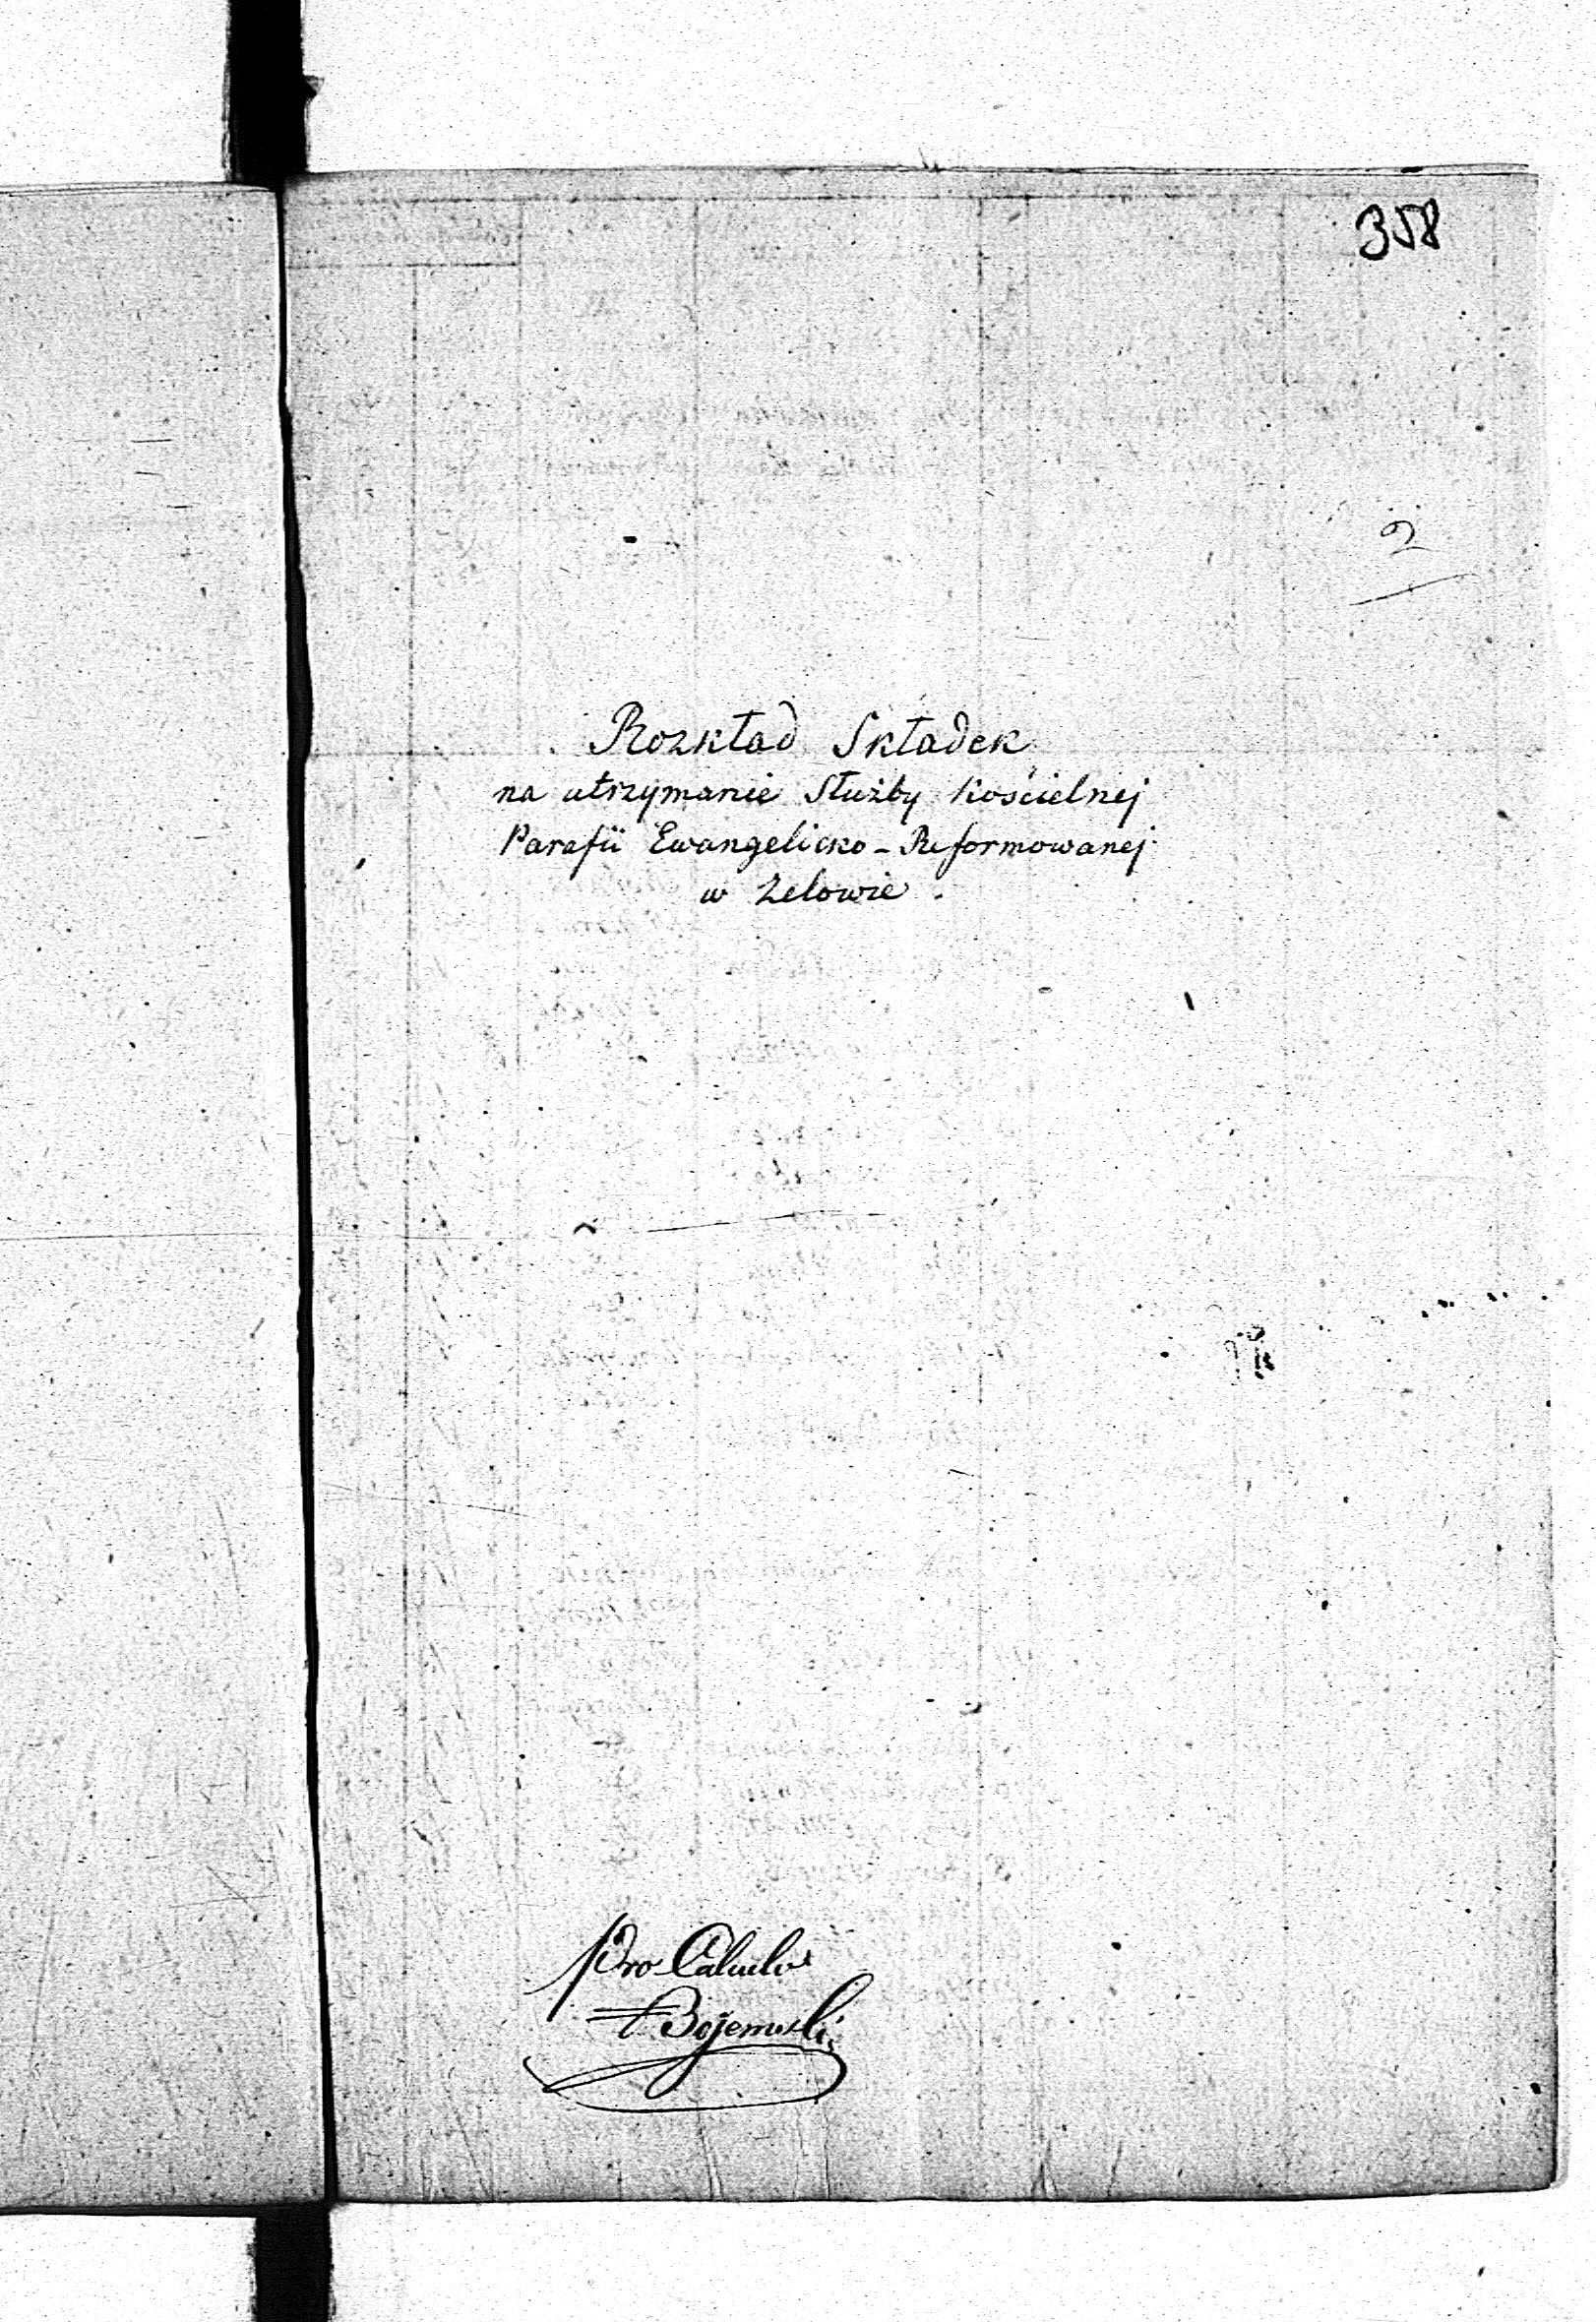 358
2
Rozkład Składek
na utrzymanie Służby Kościelnej
Parafii Ewangelicko-Reformowanej
w Zelowie.
Pro Calculo